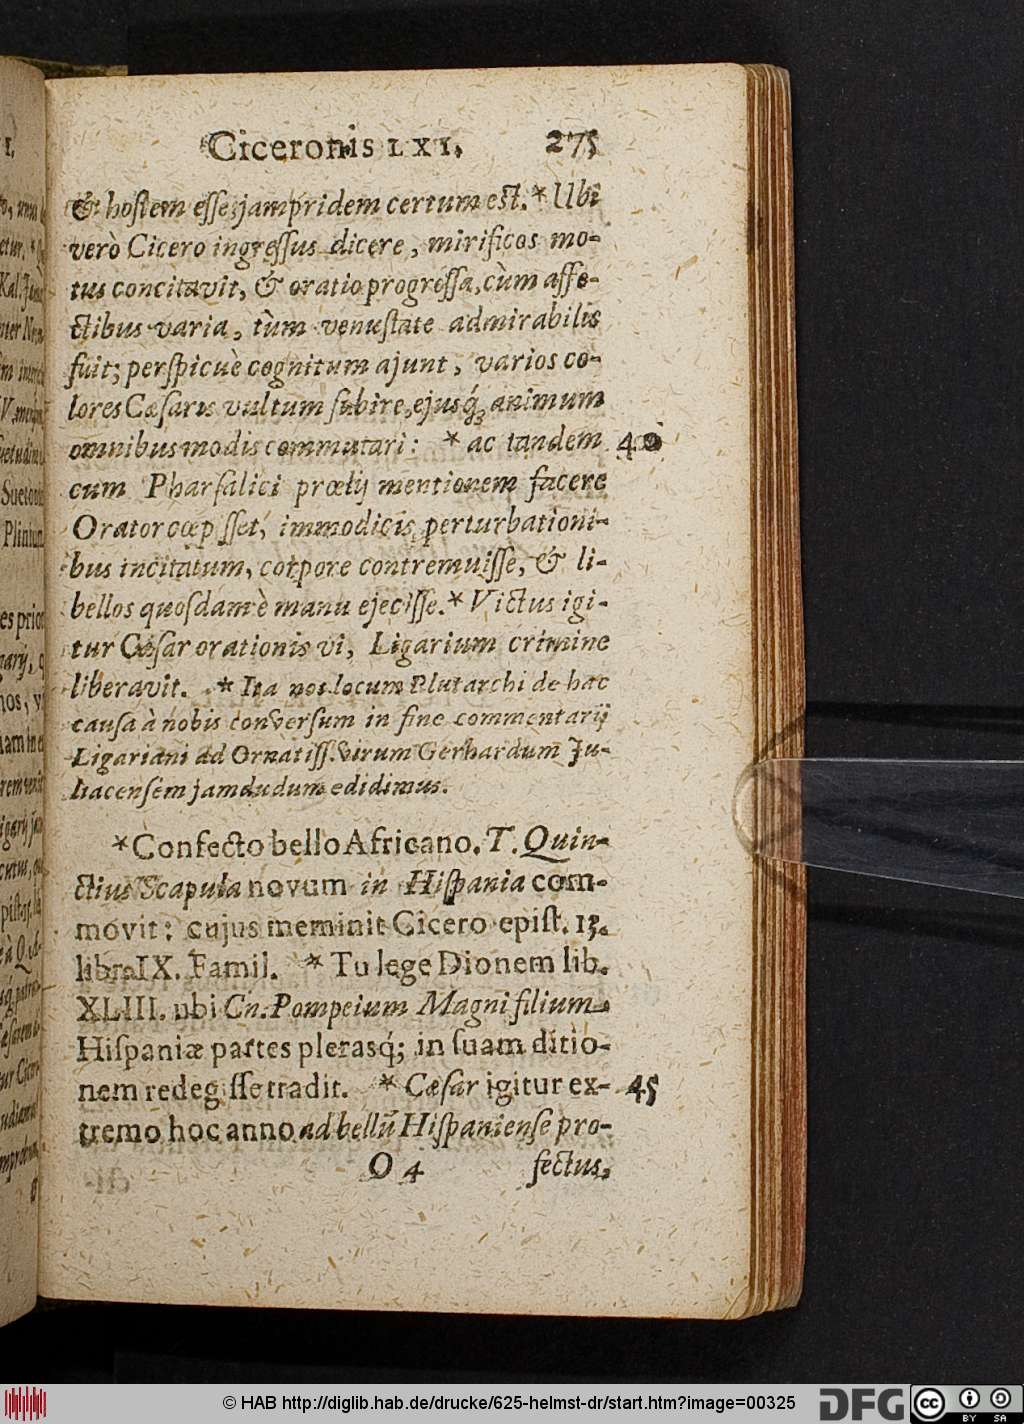 Ciceronis LXI. 275
& hostem esse, jampridem certum est. * Ubi
verò Cicero ingressus dicere, mirificos mo-
tus concitavit, & oratio progressa, cùm affe-
ctibus varia, tùm venustate admirabilis
fuit; perspicuè cognitum ajunt, varios co-
lores Cæsaris vultum subire, ejusq́; animum
omnibus modis commutari: * ac tandem 40
cum Pharsalici prœlij mentionem facere
Orator cœpisset, immodicis perturbationi-
bus incitatum, corpore contremuisse, & li-
bellos quosdam è manu ejecisse. * Victus igi-
tur Cæsar orationis vi, Ligarium crimine
liberavit. * Ita nos locum Plutarchi de hac
causa à nobis conversum in fine commentarij
Ligariani ad Ornatiss. virum Gerhardum Ju-
liacensem jamdudum edidimus.
*Confecto bello Africano. T. Quin-
ctius Scapula novum in Hispania com-
movit: cujus meminit Cicero epist. 13.
libr. IX. Famil. * Tu lege Dionem lib.
XLIII. ubi Cn. Pompeium Magni filium
Hispaniæ partes plerasq́; in suam ditio-
nem redegisse tradit. * Cæsar igitur ex- 45
tremo hoc anno ad bellũ Hispaniense pro-
O 4 fectus,
© HAB http://diglib.hab.de/drucke/625-helmst-dr/start.htm?image=00325
DFG
cc BY SA